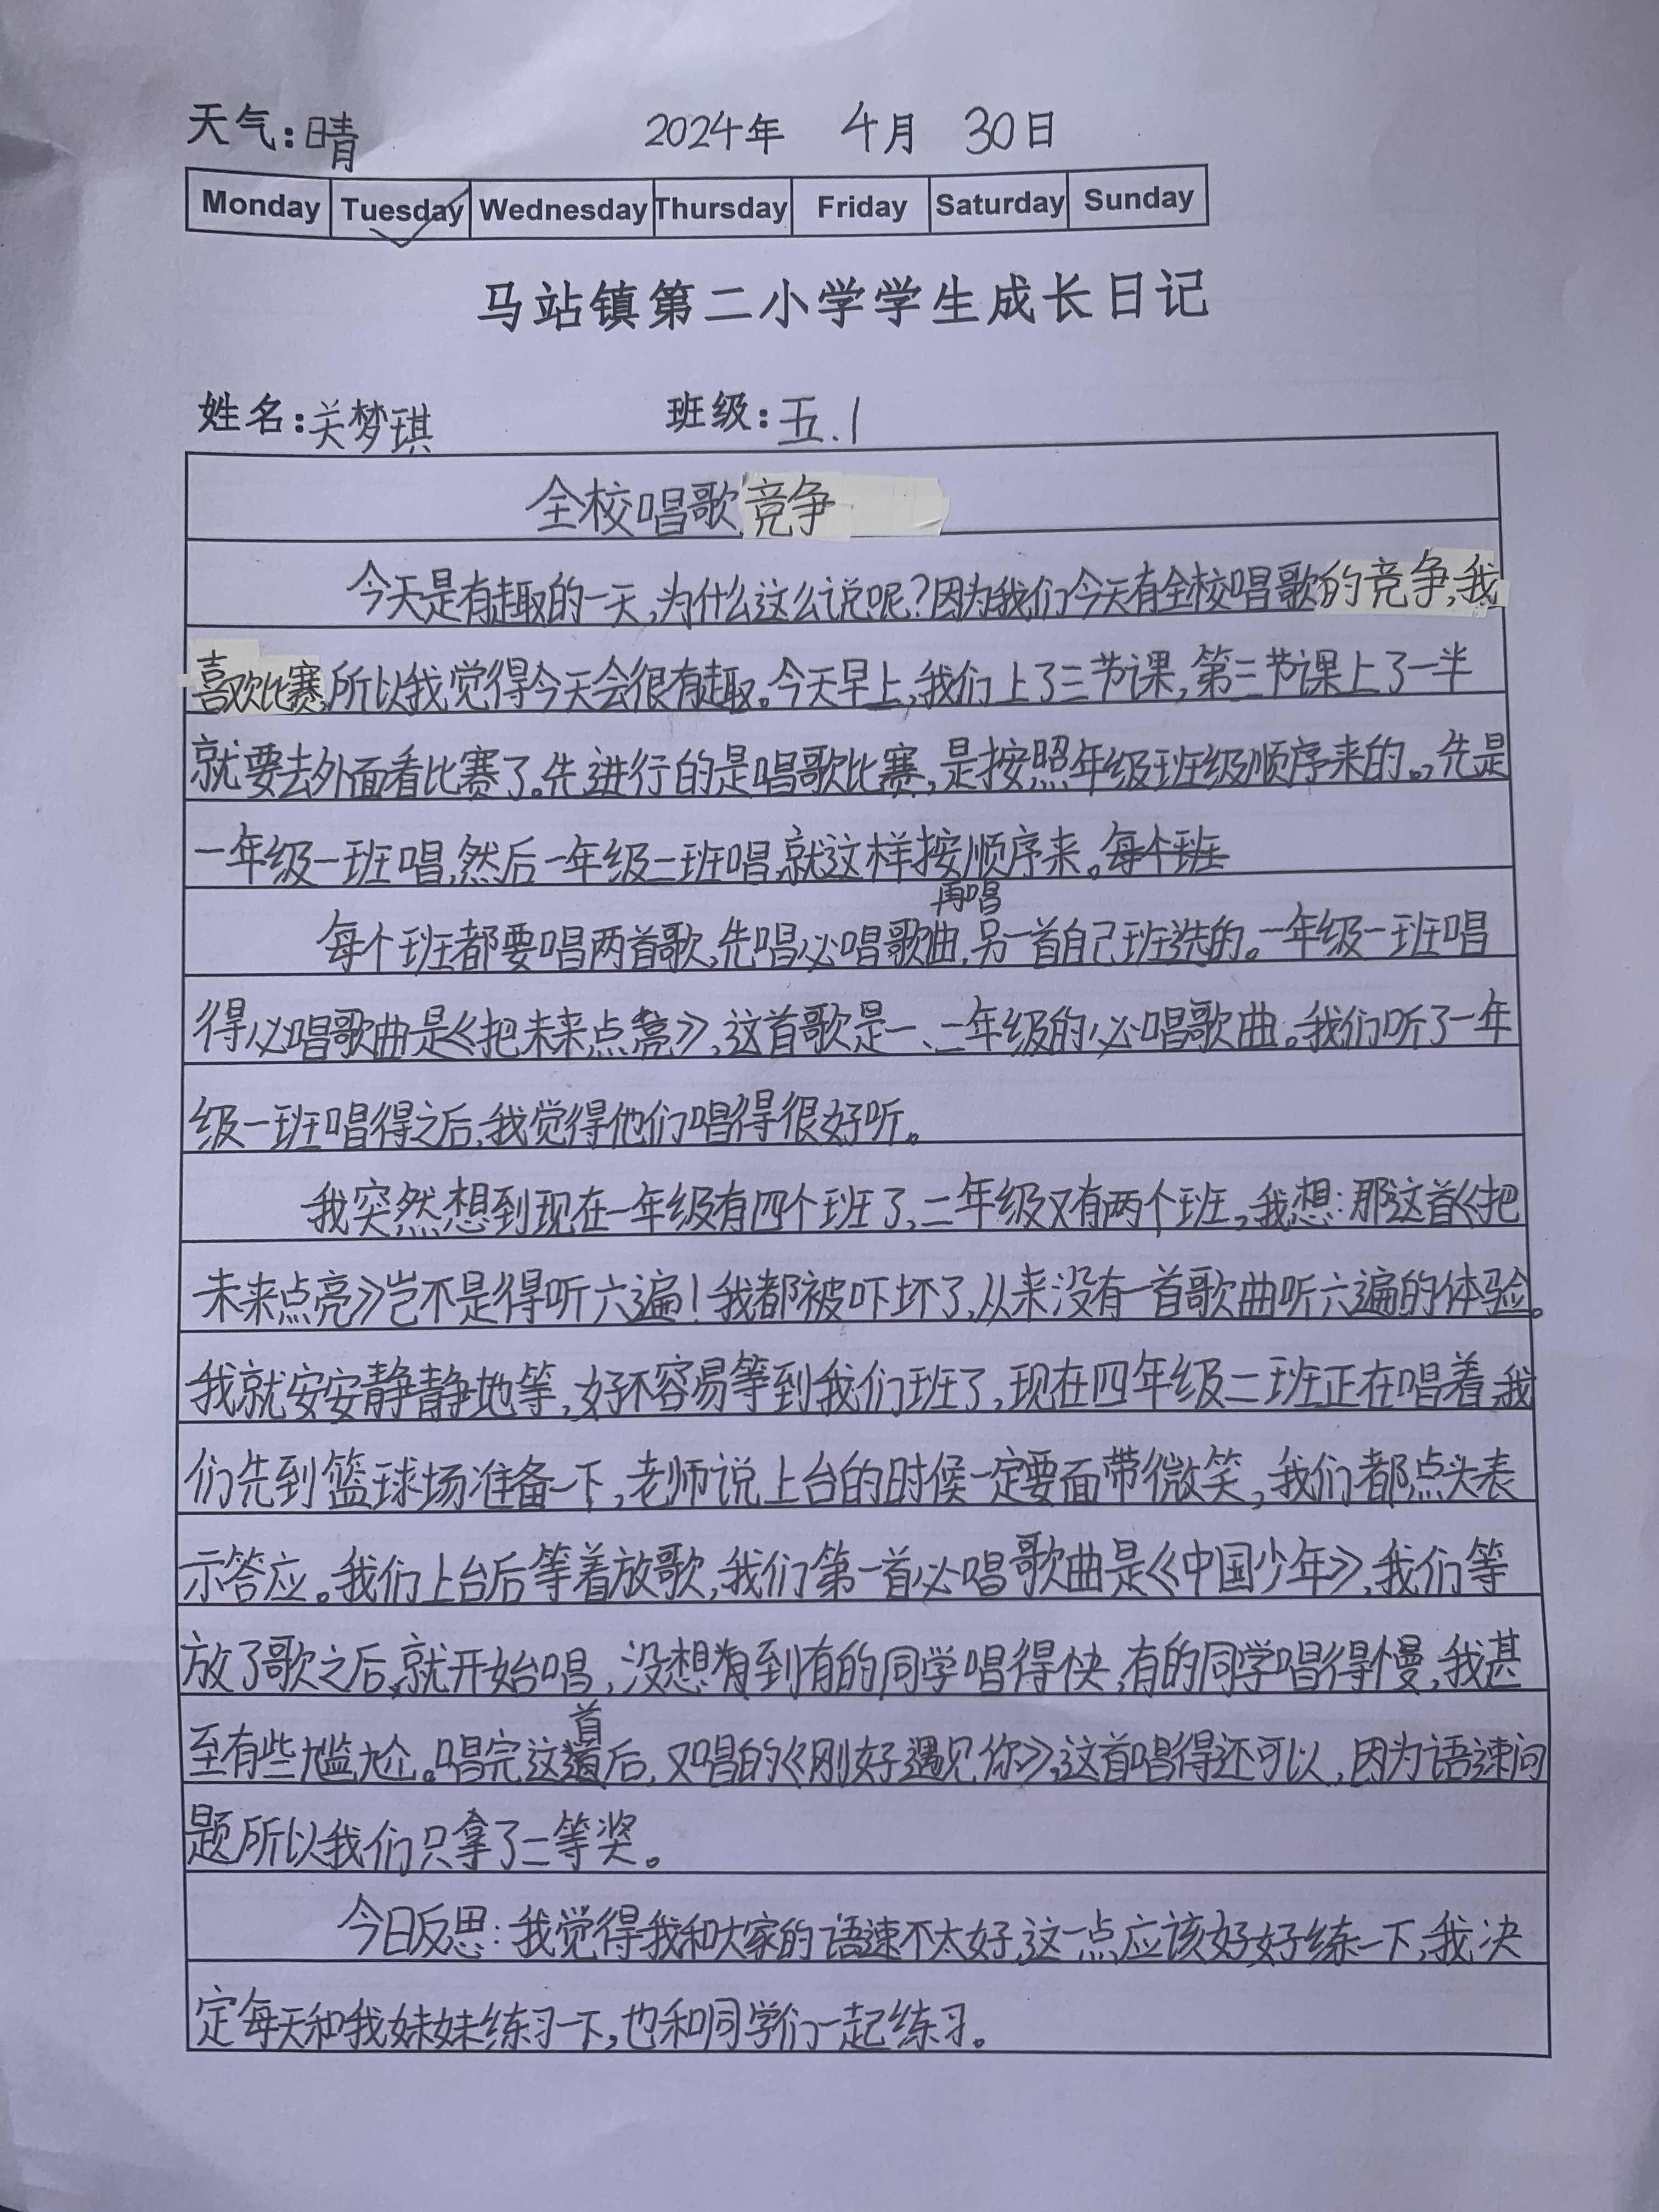 天气:晴 2024年 4月 30日
Monday Tuesday Wednesday Thursday Friday Saturday Sunday
马站镇第二小学学生成长日记
姓名:关梦琪 班级:五.1
全校唱歌竞争
今天是有趣的一天,为什么这么说呢?因为我们今天有全校唱歌的竞争,我
喜欢比赛,所以我觉得今天会很有趣。今天早上,我们上了三节课,第三节课上了一半
就要去外面看比赛了。先进行的是唱歌比赛,是按照年级班级顺序来的。,先是
一年级一班唱,然后一年级二班唱,就这样按顺序来。每个班
再唱
每个班都要唱两首歌,先唱必唱歌曲,另一首自己班选的。一年级一班唱
得必唱歌曲是《把未来点亮》,这首歌是一、二年级的必唱歌曲。我们听了一年
级一班唱得之后,我觉得他们唱得很好听。
我突然想到现在一年级有四个班了,二年级又有两个班,我想:那这首《把
未来点亮》岂不是得听六遍!我都被吓坏了,从来没有一首歌曲听六遍的体验。
我就安安静静地等,好不容易等到我们班了,现在四年级二班正在唱着,我
们先到篮球场准备一下,老师说上台的时候一定要面带微笑,我们都点头表
示答应。我们上台后等着放歌,我们第一首必唱歌曲是《中国少年》,我们等
放了歌之后,就开始唱,没想到有的同学唱得快,有的同学唱得慢,我甚
首
至有些尴尬。唱完这道后,又唱的《刚好遇见你》,这首唱得还可以,因为语速问
题所以我们只拿了二等奖。
今日反思:我觉得我和大家的语速不太好,这一点应该好好练一下,我决
定每天和我妹妹练习一下,也和同学们一起练习。